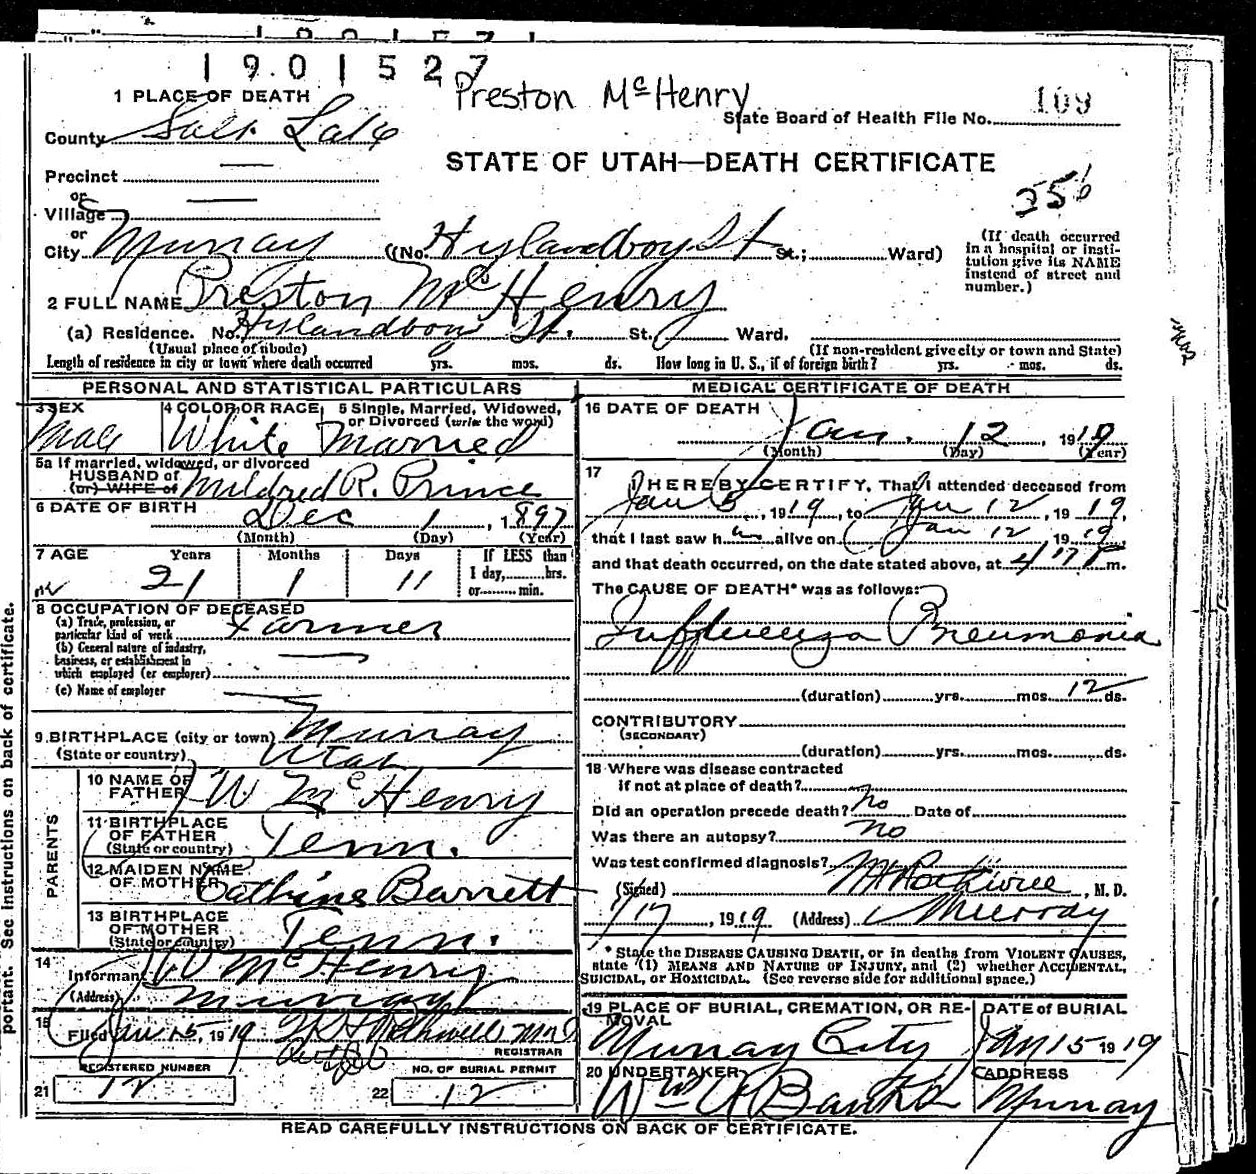 1901527
Preston McHenry
1 PLACE OF DEATH
State Board of Health File No. 109
County Salt Lake
STATE OF UTAH—DEATH CERTIFICATE
Precinct
or
Village
or
City Murray ((No. Hylandboy St St.; Ward)
(If death occurred
in a hospital or insti-
tution give its NAME
instead of street and
number.)
2 FULL NAME Preston McHenry
(a) Residence. No. Hylandboy St. St. Ward.
(Usual place of abode) (If non-resident give city or town and State)
Length of residence in city or town where death occurred yrs. mos. ds. How long in U. S., if of foreign birth? yrs. mos. ds.
PERSONAL AND STATISTICAL PARTICULARS
3 SEX 4 COLOR OR RACE 5 Single, Married, Widowed,
or Divorced (write the word)
Male White Married
5a If married, widowed, or divorced
HUSBAND of
(or) WIFE of Mildred R. Prince
6 DATE OF BIRTH Dec 1, 1897
(Month) (Day) (Year)
7 AGE Years Months Days If LESS than
1 day, hrs.
or min.
21 1 11
8 OCCUPATION OF DECEASED
(a) Trade, profession, or
particular kind of work Farmer
(b) General nature of industry,
business, or establishment in
which employed (or employer)
(c) Name of employer
9 BIRTHPLACE (city or town) Murray
(State or country) Utah
PARENTS
10 NAME OF
FATHER W McHenry
11 BIRTHPLACE
OF FATHER
(State or country) Tenn.
12 MAIDEN NAME
OF MOTHER Cathrine Barrett
13 BIRTHPLACE
OF MOTHER
(State or country) Tenn.
14
Informant W McHenry
(Address) Murray
15
Filed Jan 15, 1919
REGISTRAR
REGISTERED NUMBER NO. OF BURIAL PERMIT
21 12 22 12
MEDICAL CERTIFICATE OF DEATH
16 DATE OF DEATH
Jan. 12, 1919
(Month) (Day) (Year)
17
I HEREBY CERTIFY, That I attended deceased from
Jan 5, 1919, to Jan 12, 1919,
that I last saw h alive on Jan 12 1919,
and that death occurred, on the date stated above, at 4 17 P m.
The CAUSE OF DEATH* was as follows:
Inffluenza Pneumonia
(duration) yrs. mos. 12 ds.
CONTRIBUTORY
(SECONDARY)
(duration) yrs. mos. ds.
18 Where was disease contracted
if not at place of death?
Did an operation precede death? no Date of
Was there an autopsy? no
Was test confirmed diagnosis?
(Signed) , M. D.
1/17, 1919 (Address) Murray
* State the DISEASE CAUSING DEATH, or in deaths from VIOLENT CAUSES,
state (1) MEANS AND NATURE OF INJURY, and (2) whether ACCIDENTAL,
SUICIDAL, or HOMICIDAL. (See reverse side for additional space.)
19 PLACE OF BURIAL, CREMATION, OR RE-
MOVAL DATE of BURIAL
Murray City Jan 15 1919
20 UNDERTAKER ADDRESS
Murray
READ CAREFULLY INSTRUCTIONS ON BACK OF CERTIFICATE.
portant. See instructions on back of certificate.